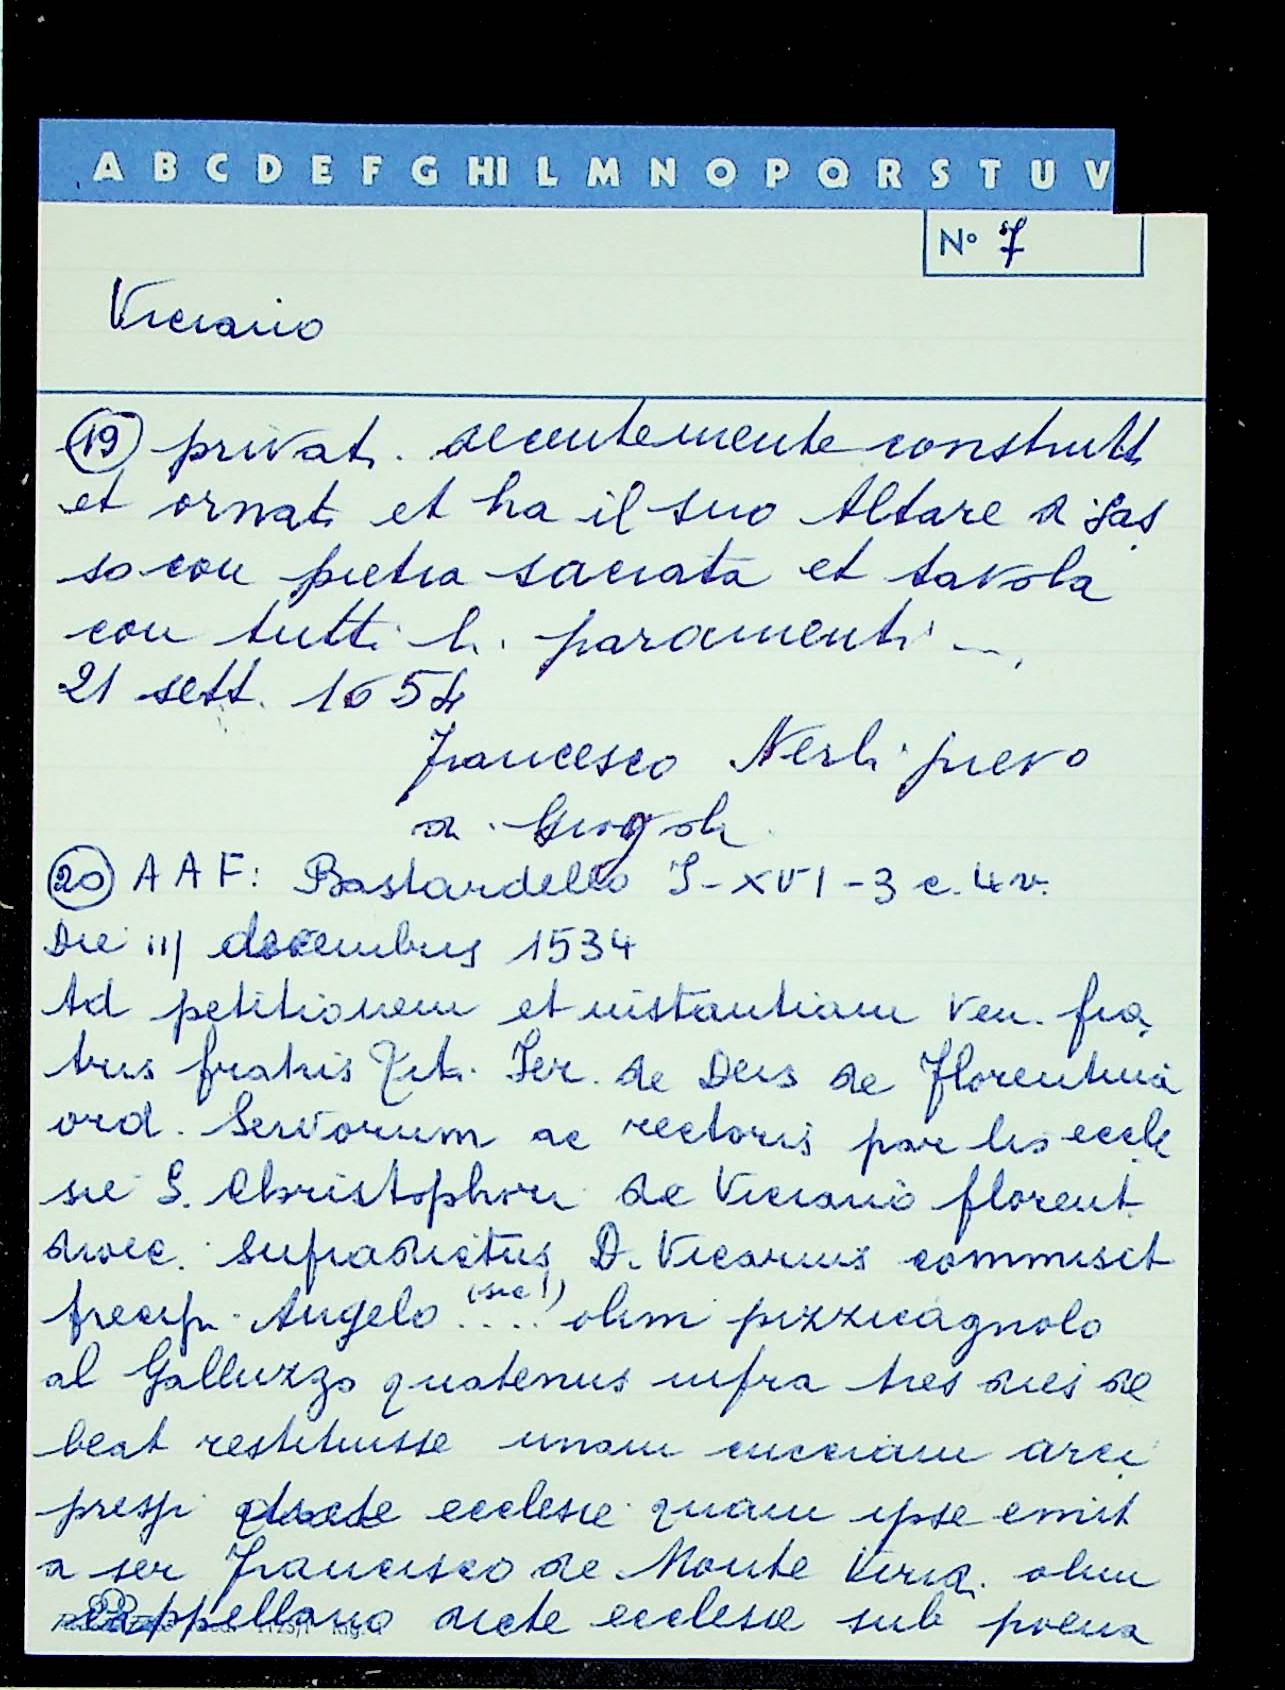 A B C D E F G HI L M N O P Q R S T U V
N° 7
Viciano
19 privati. decentemente construtti
et ornati et ha il suo Altare di sas
so con pietra sacrata et tavola
con tutti li paramenti ....
21 sett. 1654
Francesco Nerli pievo
di Giogoli
20 AAF: Bastardello I-XVI-3 c. 4v.
Die iij decembris 1534
Ad petitionem et instantiam Ven. fra
tris fratris Ser. de Deis de Florentina
ord. Servorum ac rectoris par lis eccle
sie S. Christophori de Viciano florent
dioec. supradictus D. Vicarius commisit
precip. Angelo .... (sic!) olim pizzicagnolo
al Galluzzo quatenus infra tres dies de
beat restituisse unam
presp. dicte ecclesie quam ipse emit
a ser Francisco de Monte olim
cappellano dicte ecclesie sub poena